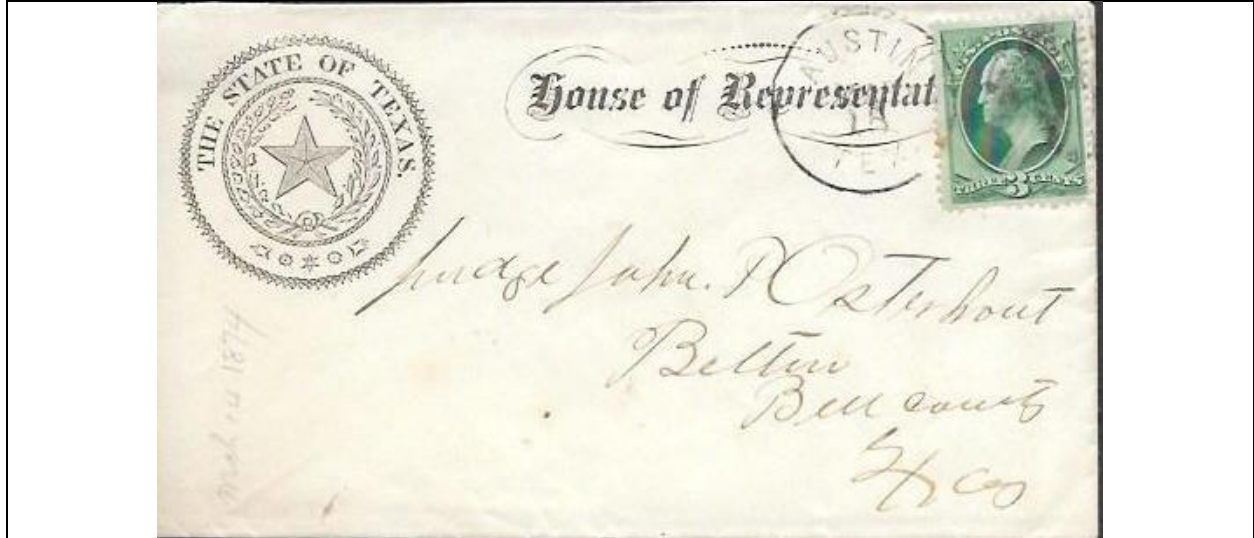 THE STATE OF TEXAS.
House of Representat
AUSTIN
TEX
U.S. POSTAGE
THREE 3 CENTS
Judge John. P Osterhout
Belton
Bell County
Texas
1874